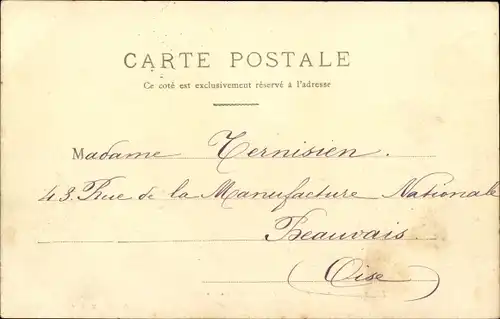 CARTE POSTALE
Ce coté est exclusivement réservé à l'adresse
Madame Ternisien.
43. Rue de la Manufacture Nationale
Beauvais.
(Oise)